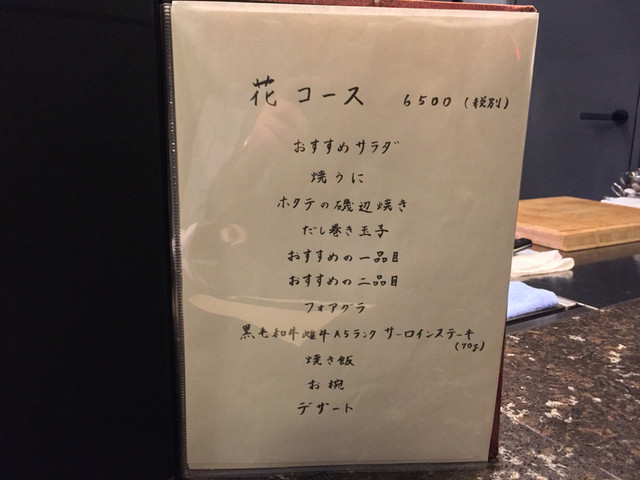 花コース 6500(税別)
おすすめサラダ
焼うに
ホタテの磯辺焼き
だし巻き玉子
おすすめの一品目
おすすめの二品目
フォアグラ
黒毛和牛雌牛A5ランク サーロインステーキ
(70g)
焼き飯
お椀
デザート